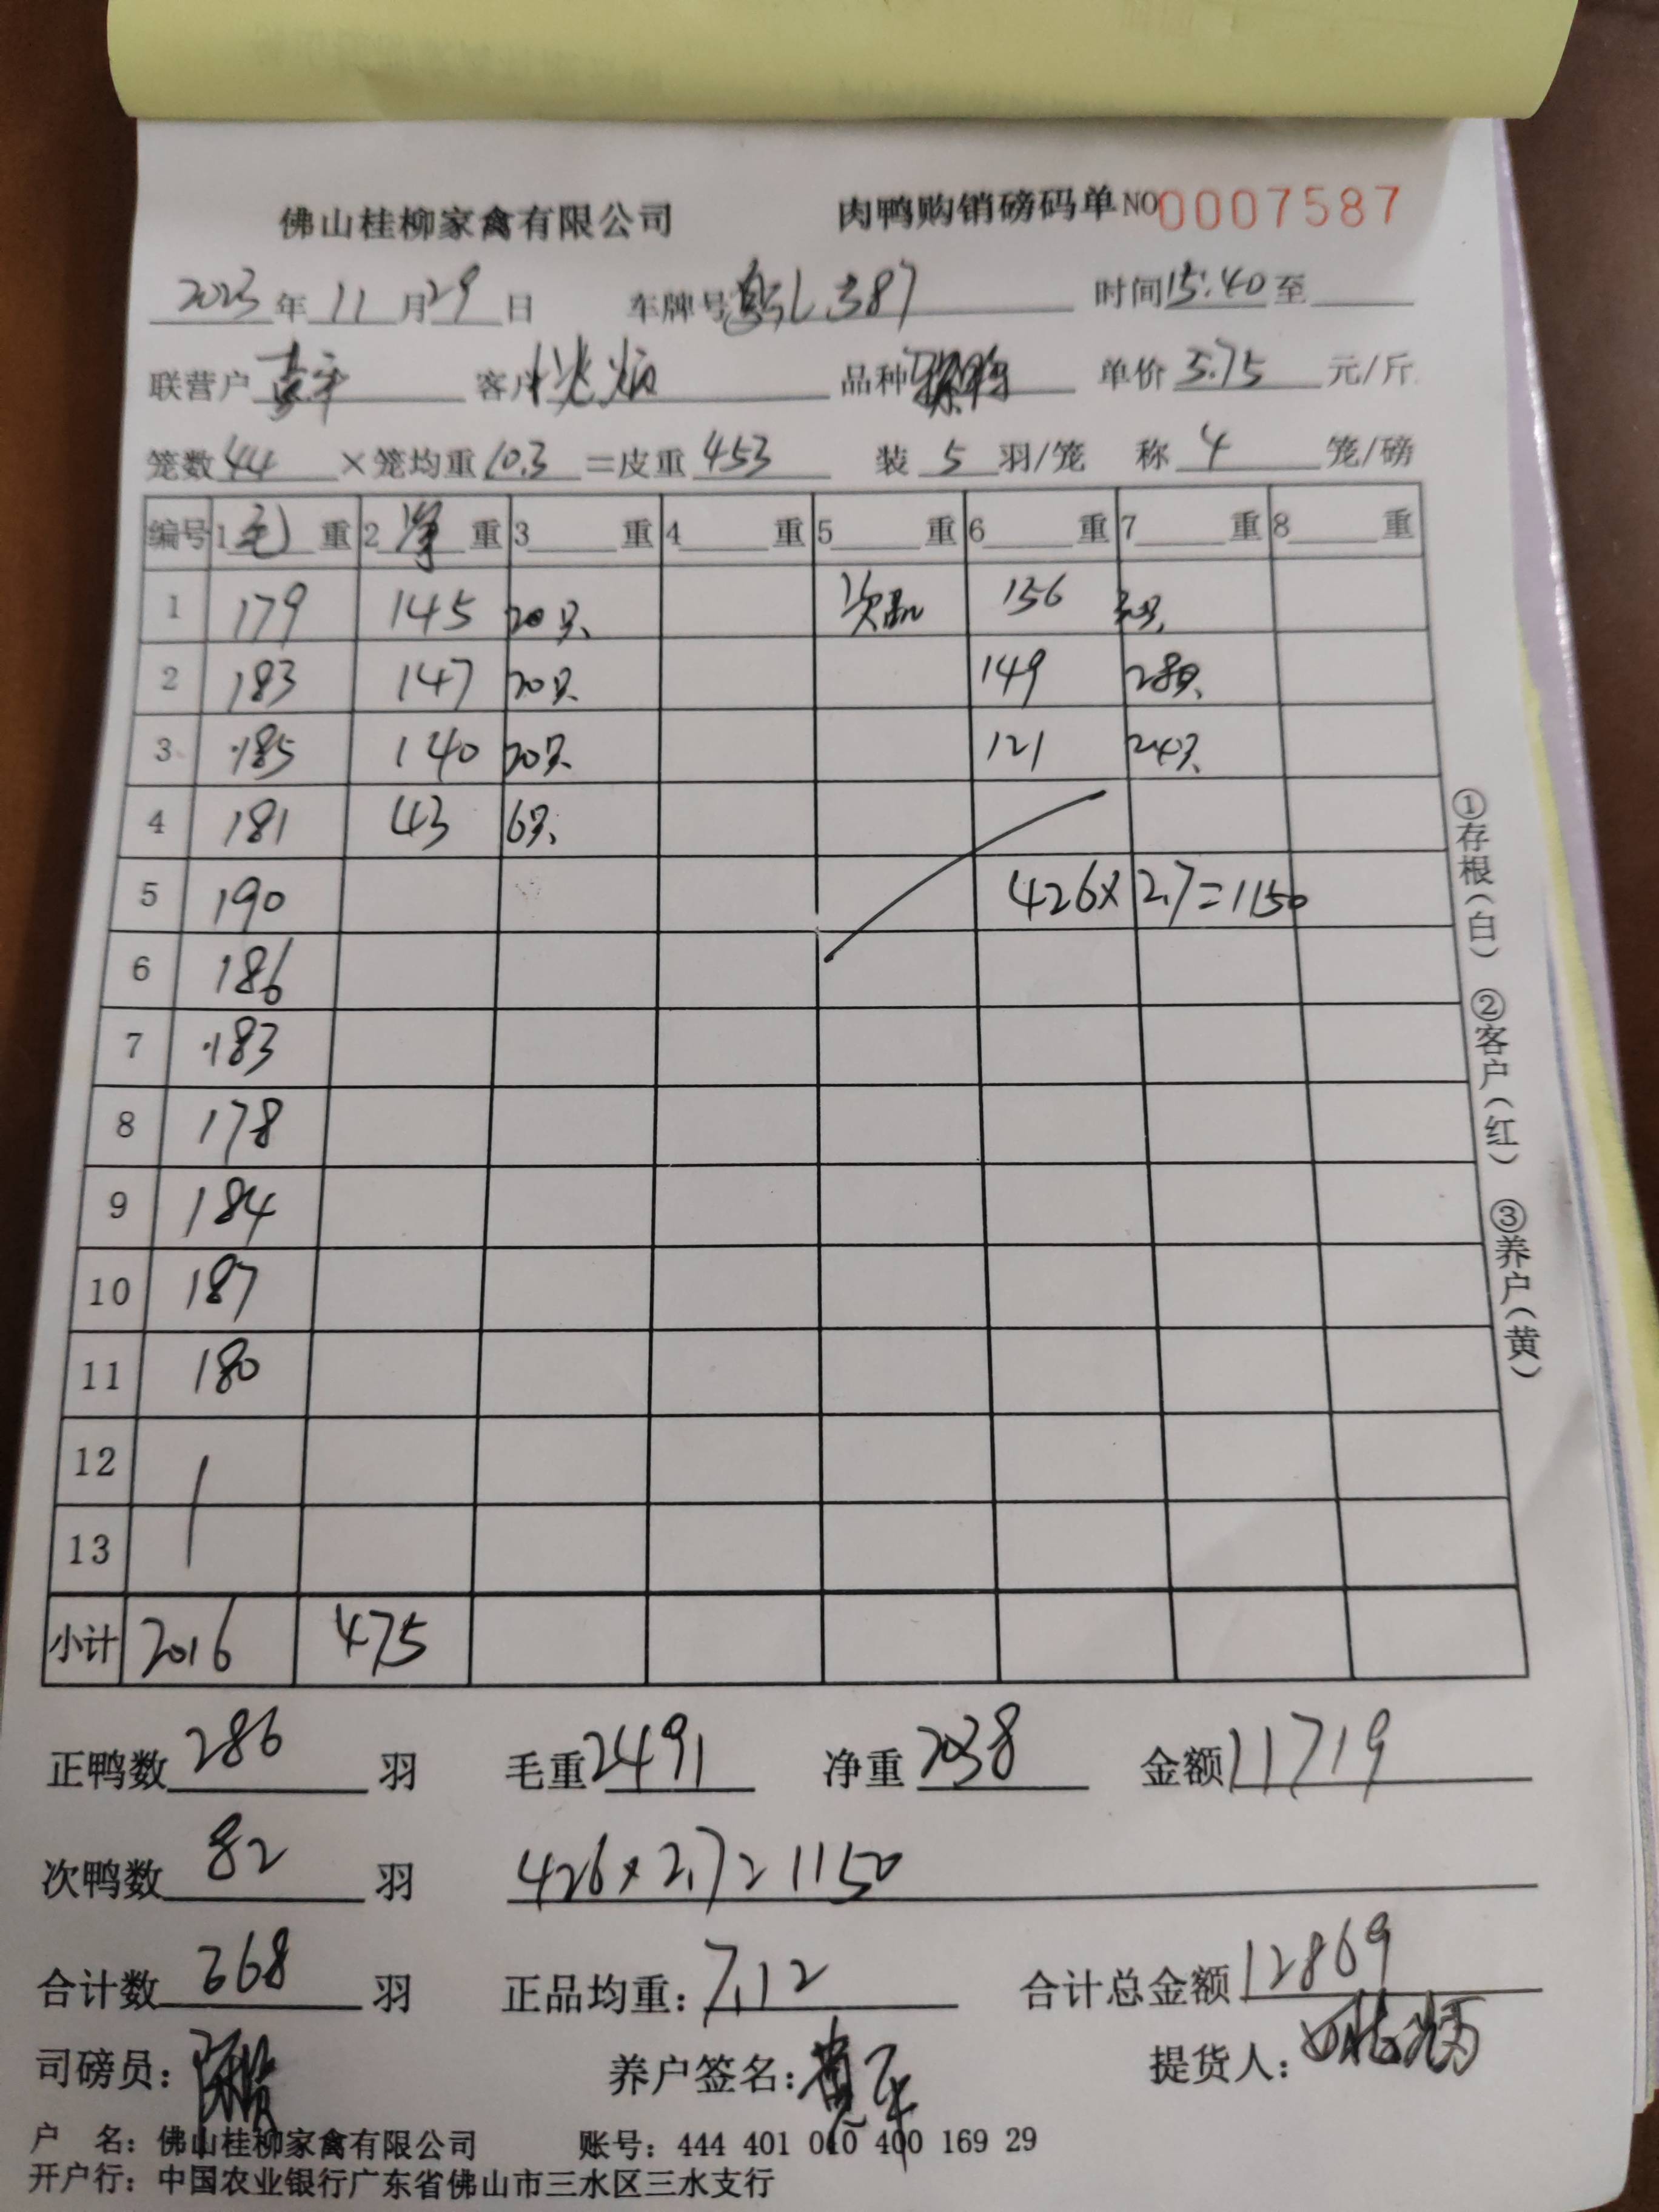 佛山桂柳家禽有限公司 肉鸭购销磅码单 NO 0007587
2023年11月29日 车牌号 L 387 时间15:40至
联营户 客户 兆炳 品种 单价5.75元/斤
笼数44×笼均重10.3=皮重453 装5羽/笼 称4笼/磅
编号 1毛重 2净重 3重 4重 5重 6重 7重 8重
1 179 145 20只 次品 156 30只
2 183 147 20只 149 28只
3 185 140 20只 121 24只
4 181 43 6只
5 190 426×2.7=1150
6 186
7 183
8 178
9 184
10 187
11 180
12
13
小计 2016 475
正鸭数286羽 毛重2491 净重2038 金额11719
次鸭数82羽 426×2.7=1150
合计数368羽 正品均重:7.12 合计总金额12869
司磅员: 养户签名:黄平 提货人:
户 名:佛山桂柳家禽有限公司 账号:444 401 040 400 169 29
开户行:中国农业银行广东省佛山市三水区三水支行
①存根(白) ②客户(红) ③养户(黄)